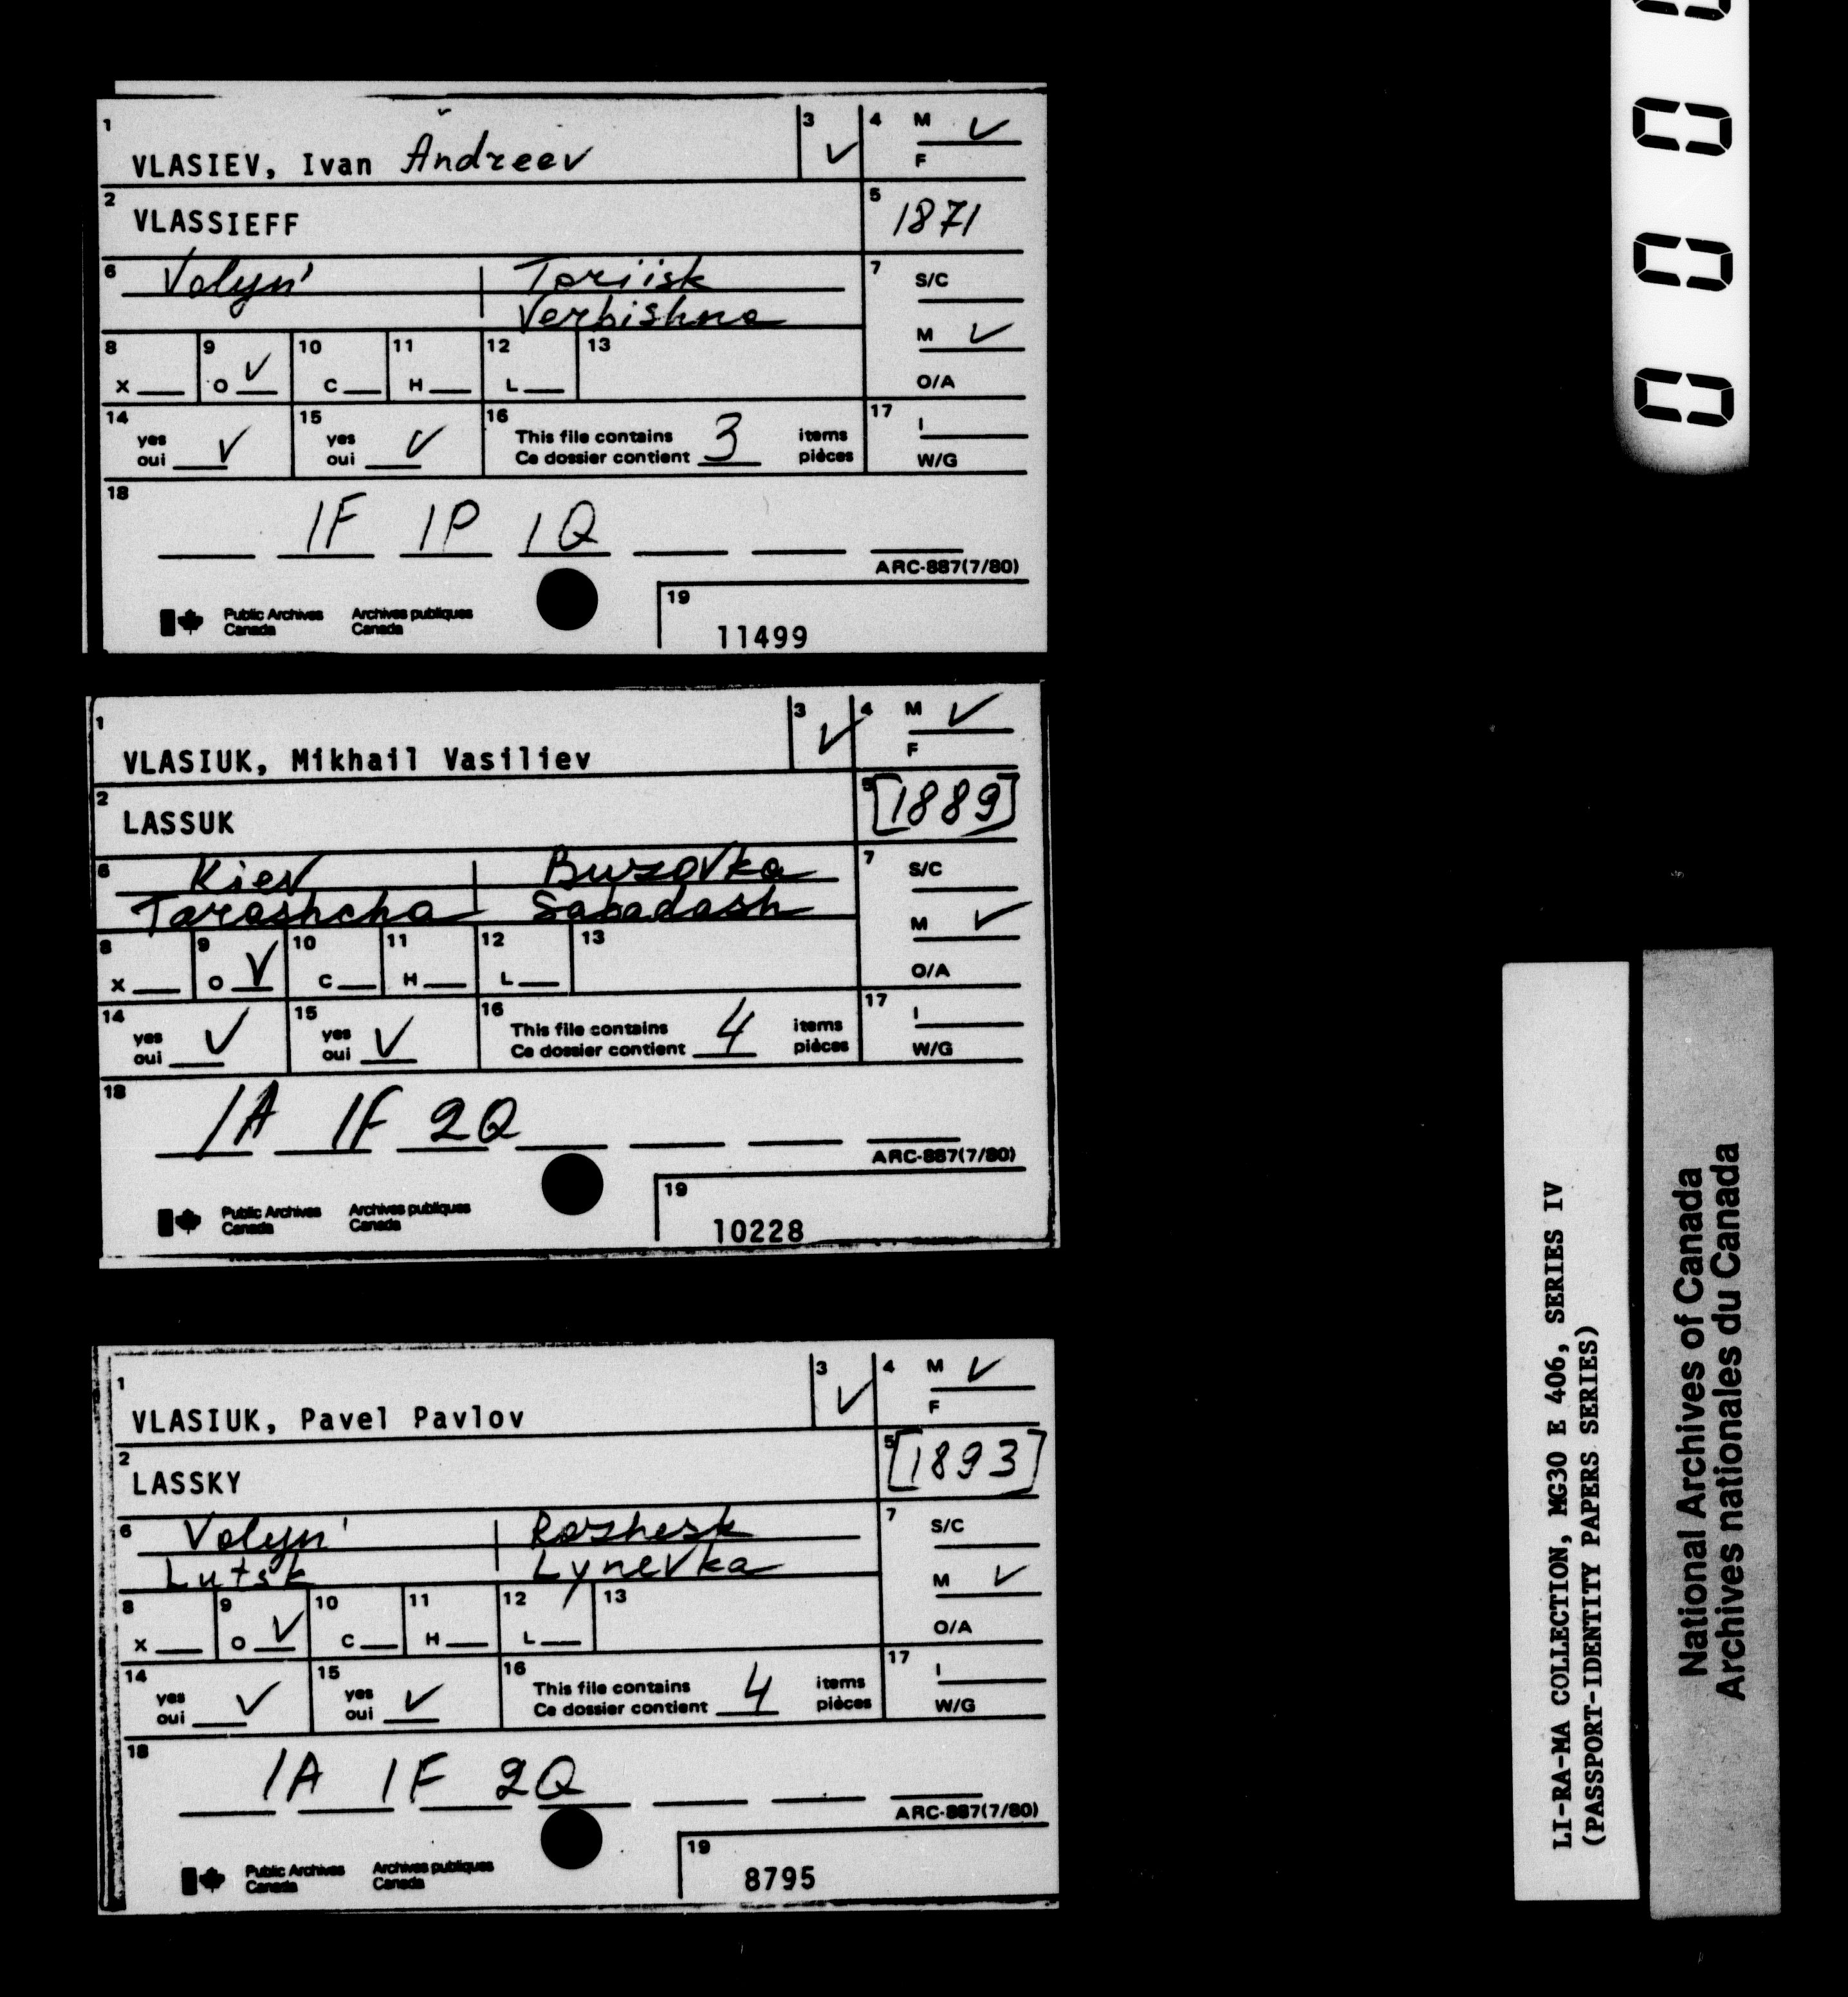 1
VLASIEV, Ivan Andreev
3 ✓
4 M ✓
F
2
VLASSIEFF
5
1871
6 Volyn' Toriisk
Verbishna
7 S/C
M ✓
O/A
8 X
9 O ✓
10 C
11 H
12 L
13
14 yes oui ✓
15 yes oui ✓
16 This file contains 3 items
Ce dossier contient pièces
17 I
W/G
18
1F 1P 1Q
ARC-887(7/80)
Public Archives Canada
Archives publiques Canada
19
11499
1
VLASIUK, Mikhail Vasiliev
3 ✓
4 M ✓
F
2
LASSUK
5
[1889]
6 Kiev Buzovka
Tarashcha Sabadash
7 S/C
M ✓
O/A
8 X
9 O ✓
10 C
11 H
12 L
13
14 yes oui ✓
15 yes oui ✓
16 This file contains 4 items
Ce dossier contient pièces
17 I
W/G
18
1A 1F 2Q
ARC-887(7/80)
Public Archives Canada
Archives publiques Canada
19
10228
1
VLASIUK, Pavel Pavlov
3 ✓
4 M ✓
F
2
LASSKY
5
[1893]
6 Volyn' Rozhesk
Lutsk Lynevka
7 S/C
M ✓
O/A
8 X
9 O ✓
10 C
11 H
12 L
13
14 yes oui ✓
15 yes oui ✓
16 This file contains 4 items
Ce dossier contient pièces
17 I
W/G
18
1A 1F 2Q
ARC-887(7/80)
Public Archives Canada
Archives publiques Canada
19
8795
0 0 0
LI-RA-MA COLLECTION, MG30 E 406, SERIES IV
(PASSPORT-IDENTITY PAPERS SERIES)
National Archives of Canada
Archives nationales du Canada